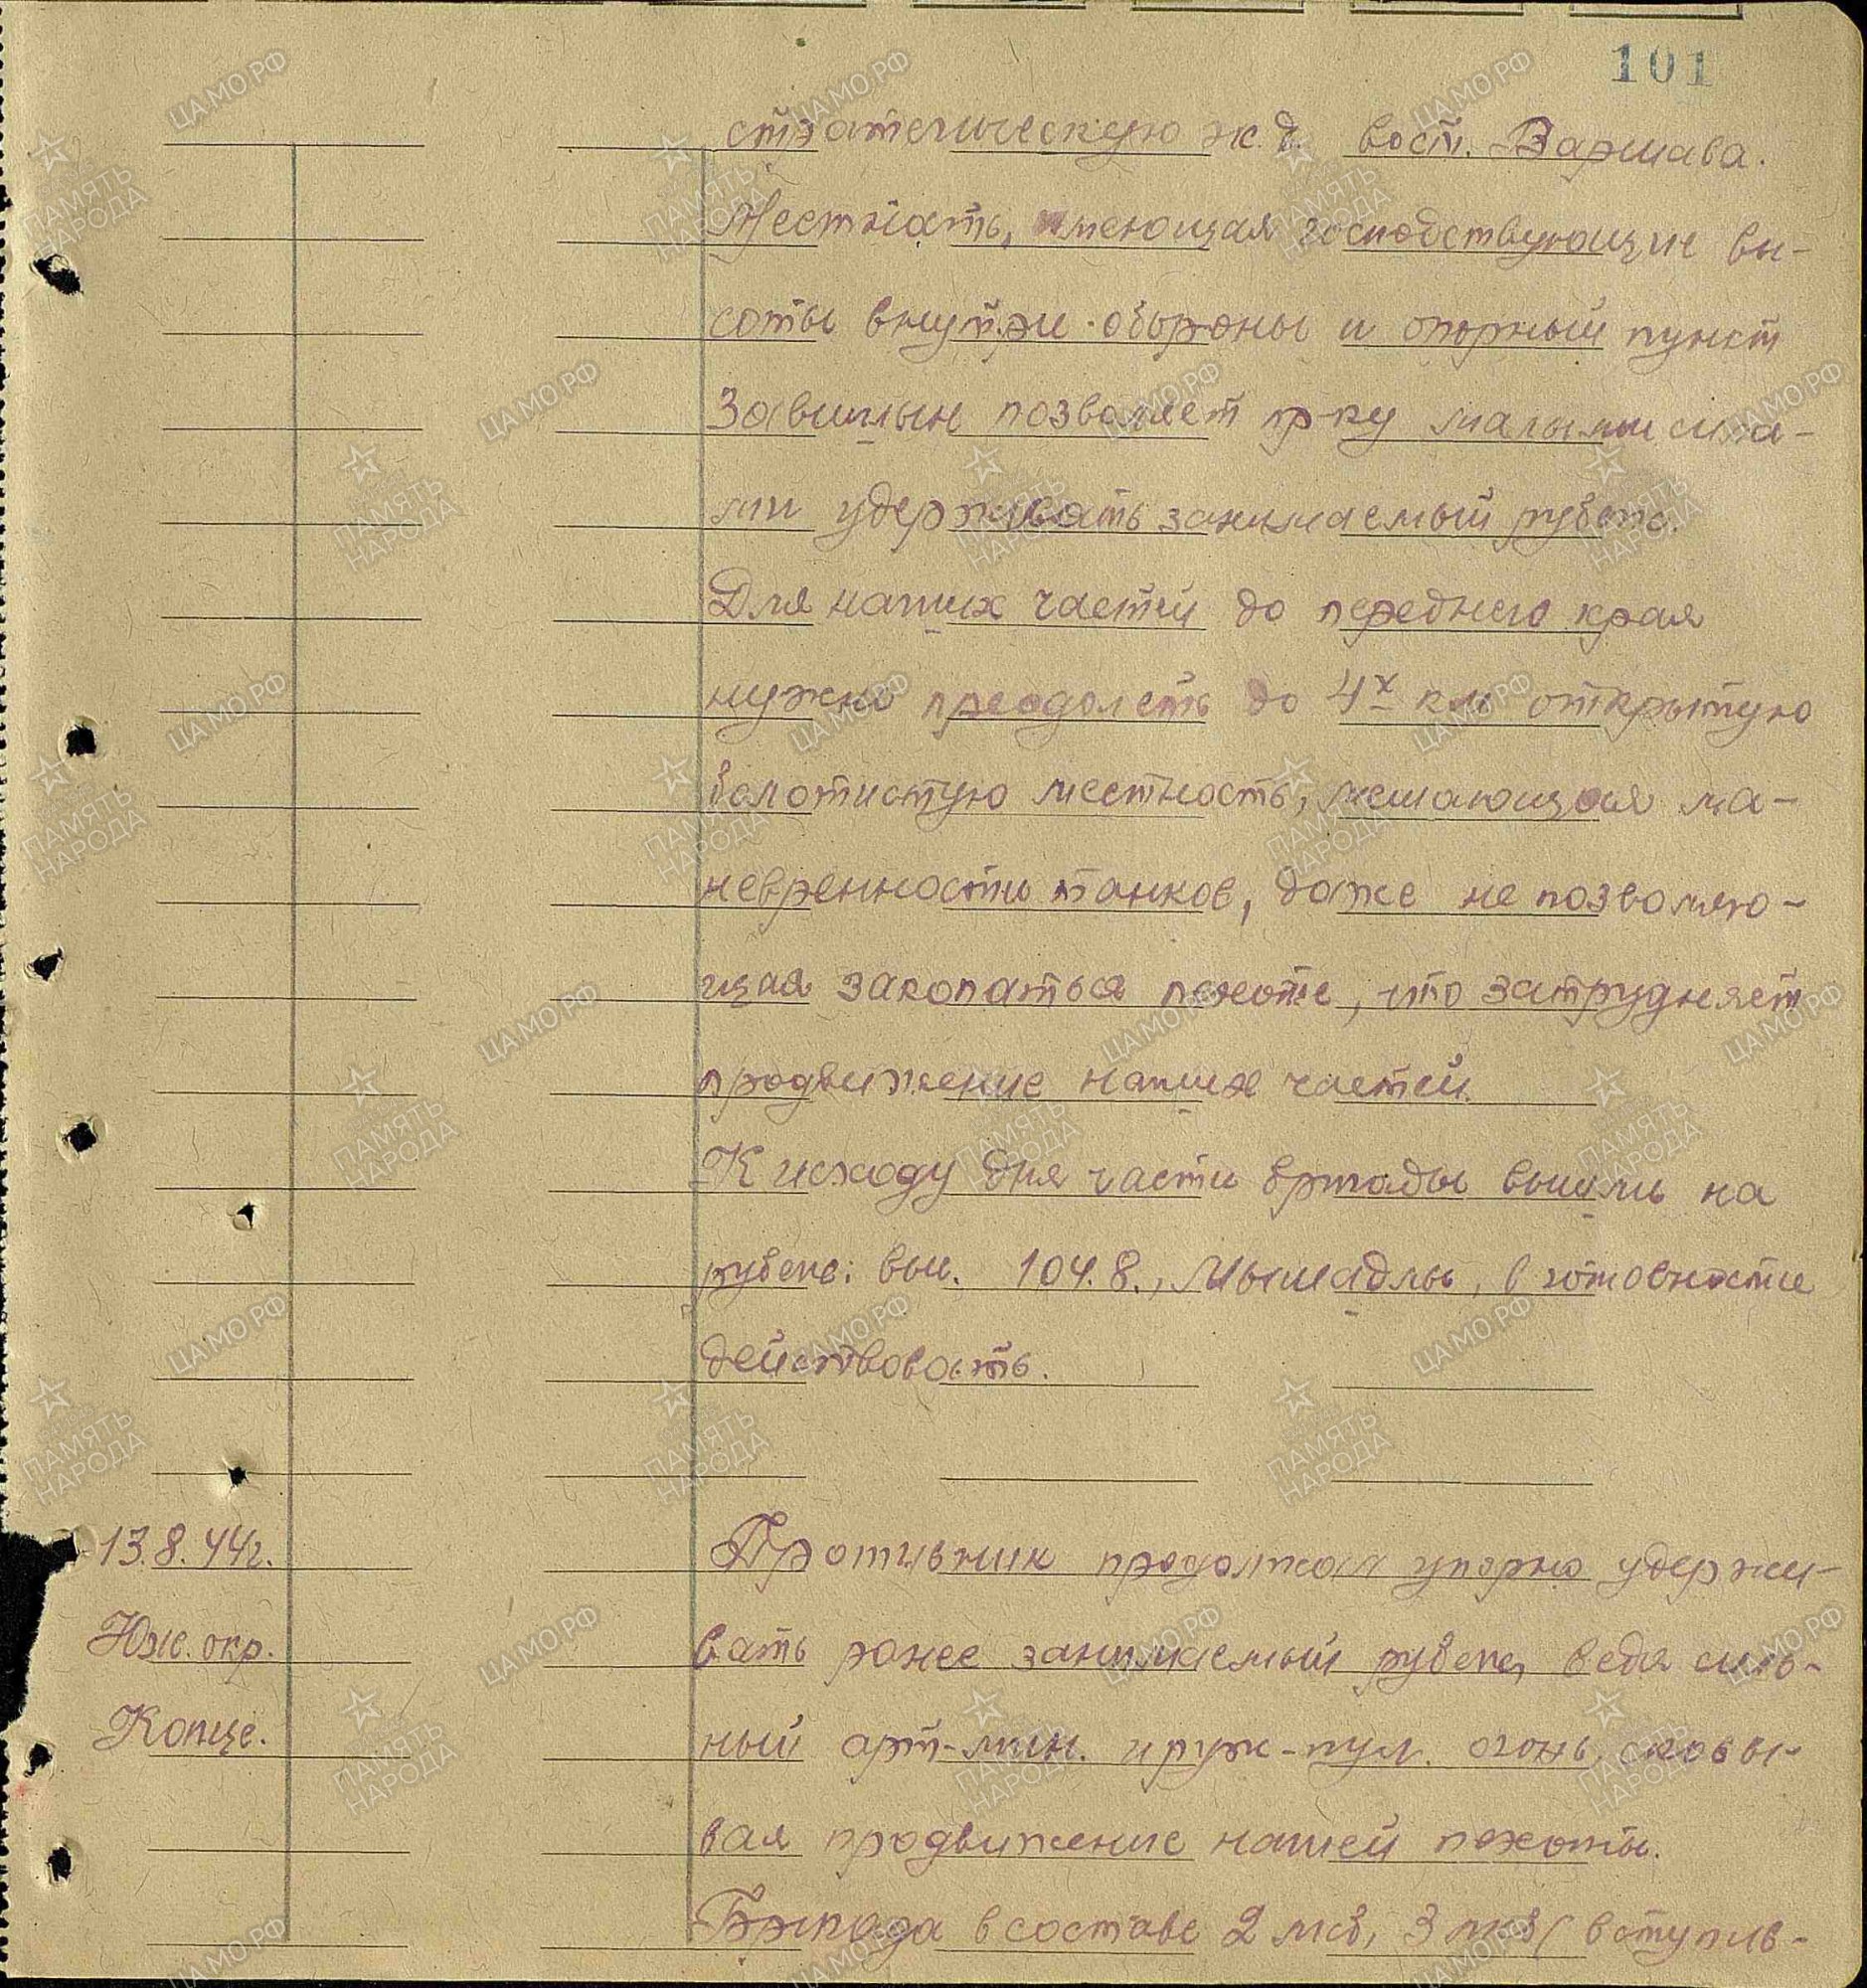 101
стратегическую ж.д. вост. Варшава.
Местность, имеющая господствующие вы-
соты внутри обороны и опорный пункт
Завишын позволяет пр-ку малыми сила-
ми удерживать занимаемый рубеж.
Для наших частей до переднего края
нужно преодолеть до 4х км открытую
болотистую местность, мешающая ма-
невренности танков, даже не позволяю-
щая закопаться пехоте, что затрудняет
продвижение наших частей.
К исходу дня части бригады вышли на
рубеж: выс. 104.8., Мышадлы, в готовности
действовать.
13.8.44г. Противник продолжал упорно удержи-
Юж. окр. вать ранее занимаемый рубеж, ведя силь-
Копце. ный арт-мин. и руж-пул. огонь, сковы-
вая продвижение нашей пехоты.
Бригада в составе 2 мсб, 3 мсб (вступив-